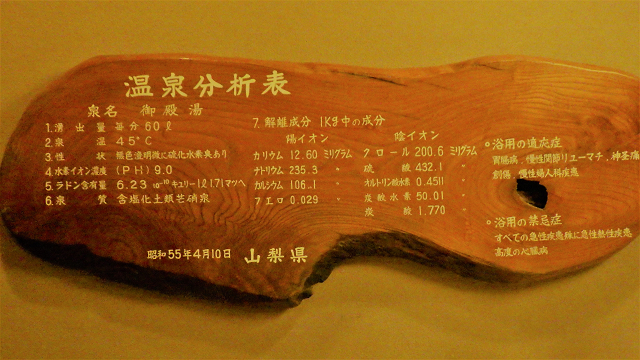 温泉分析表
泉名 御殿湯
1. 湧出量 毎分60ℓ
2. 泉温 45°C
3. 性状 無色透明微に硫化水素臭あり
4. 水素イオン濃度 (PH) 9.0
5. ラドン含有量 6.23 10⁻¹⁰キュリー1ℓ 1.71マツヘ
6. 泉質 含塩化土類芒硝泉
7. 解離成分 1Kg中の成分
陽イオン
カリウム 12.60 ミリグラム
ナトリウム 235.3 〃
カルシウム 106.1 〃
フエロ 0.029 〃
陰イオン
クロール 200.6 ミリグラム
硫酸 432.1 〃
オルトリン酸水素 0.4511 〃
炭酸水素 50.01 〃
炭酸 1.770 〃
浴用の適応症
胃腸病、慢性関節リューマチ、神茎痛
創傷、慢性婦人科疾患
浴用の禁忌症
すべての急性疾患殊に急性熱性疾患
高度の心臓病
昭和55年4月10日 山梨県